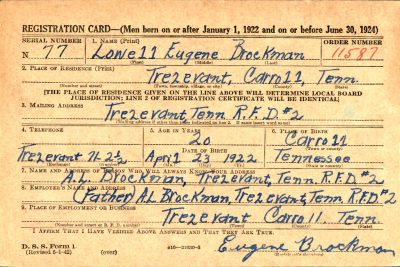 REGISTRATION CARD—(Men born on or after January 1, 1922 and on or before June 30, 1924)
SERIAL NUMBER 1. NAME (Print) ORDER NUMBER
N 77 Lowell Eugene Brockman 11587
(First) (Middle) (Last)
2. PLACE OF RESIDENCE (Print)
Trezevant, Carroll, Tenn.
(Number and street) (Town, township, village, or city) (County) (State)
[THE PLACE OF RESIDENCE GIVEN ON THE LINE ABOVE WILL DETERMINE LOCAL BOARD
JURISDICTION; LINE 2 OF REGISTRATION CERTIFICATE WILL BE IDENTICAL]
3. MAILING ADDRESS
Trezevant, Tenn R.F.D. #2
[Mailing address if other than place indicated on line 2. If same insert word same]
4. TELEPHONE 5. AGE IN YEARS 6. PLACE OF BIRTH
20 Carroll
DATE OF BIRTH (Town or county)
Trezevant 7L 2½ April 23 1922 Tennessee
(Exchange) (Number) (Mo.) (Day) (Yr.) (State or country)
7. NAME AND ADDRESS OF PERSON WHO WILL ALWAYS KNOW YOUR ADDRESS
A.L. Brockman, Trezevant, Tenn. R.F.D. #2
8. EMPLOYER'S NAME AND ADDRESS
(Father) A.L. Brockman, Trezevant, Tenn. R.F.D. #2
9. PLACE OF EMPLOYMENT OR BUSINESS
Trezevant Carroll Tenn.
(Number and street or R. F. D. number) (Town) (County) (State)
I AFFIRM THAT I HAVE VERIFIED ABOVE ANSWERS AND THAT THEY ARE TRUE.
D. S. S. Form 1
(Revised 6-1-42) (over) Eugene Brockman